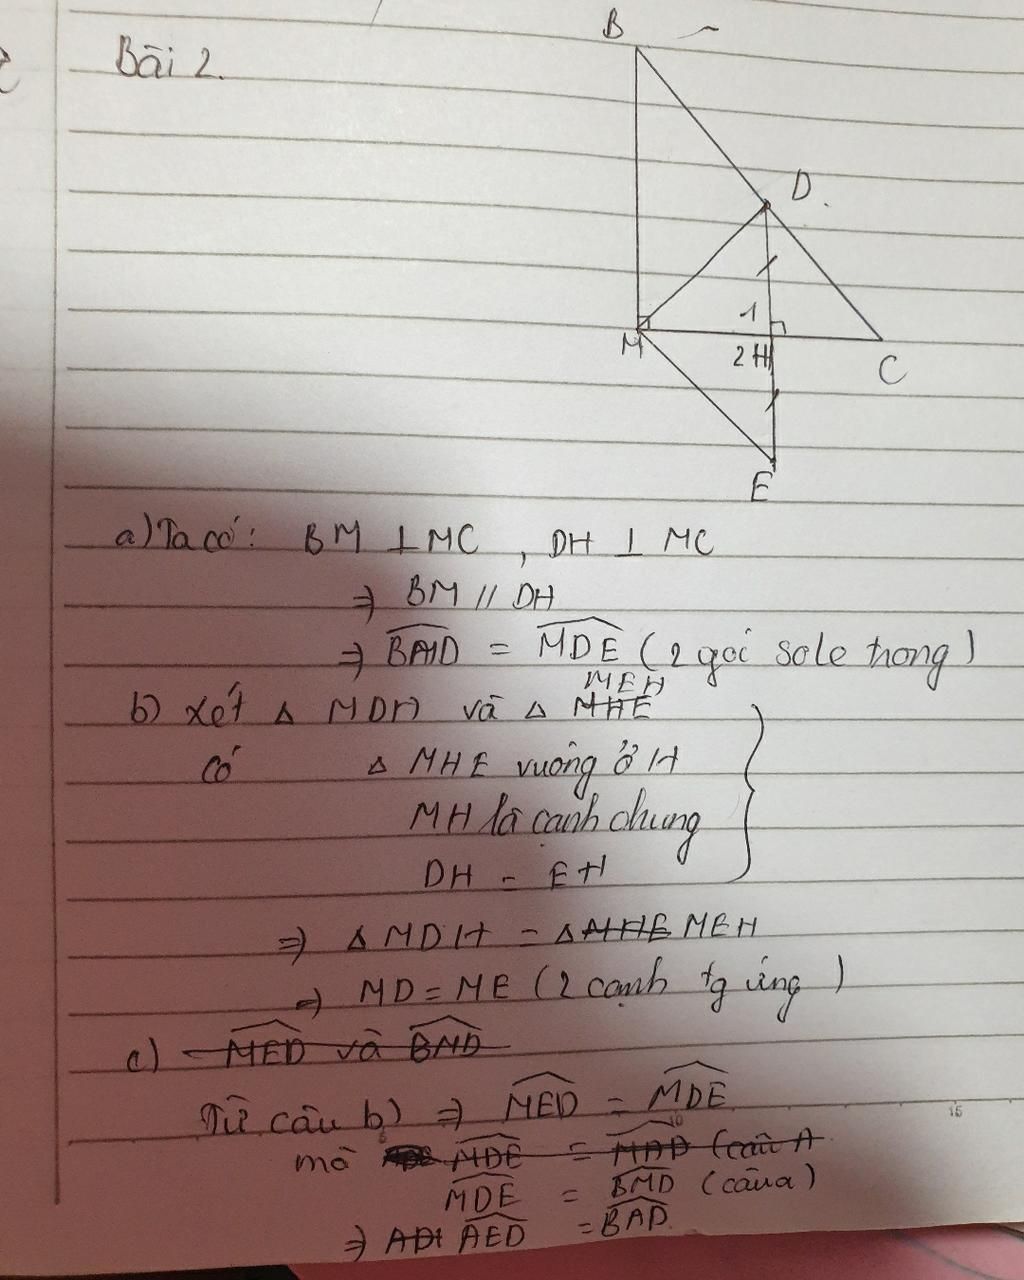 Bài 2.
B
D.
1
M
2 H
C
E
a) Ta có: BM ⊥ MC, DH ⊥ MC
⇒ BM // DH
⇒ BMD = MDE (2 góc sole trong)
MEH
b) Xét Δ MDH và Δ MHE
có Δ MHE vuông ở H
MH là cạnh chung
DH = EH
⇒ Δ MDH = Δ MHE MEH
⇒ MD = ME (2 cạnh tg ứng)
c) MED và BMD
Từ câu b) ⇒ MED = MDE
mà MDE = MAD (câu A
MDE = BMD (câu a)
⇒ ADI AED = BAD
15